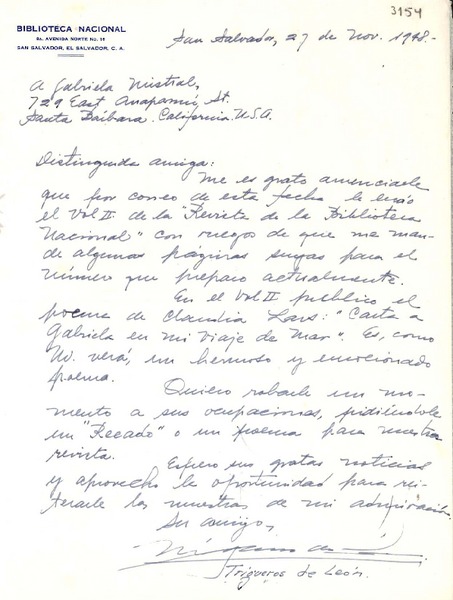 3154
BIBLIOTECA NACIONAL
8A. AVENIDA NORTE No. 16
SAN SALVADOR, EL SALVADOR, C. A.
San Salvador, 27 de Nov. 1948.-
A Gabriela Mistral,
729 East Anapamú, St.
Santa Bárbara. California. U.S.A.
Distinguida amiga:
Me es grato anunciarle
que por correo de esta fecha le envío
el Vol II de la "Revista de la Biblioteca
Nacional" con ruegos de que me man-
de algunas páginas suyas para el
número que preparo actualmente.
En el Vol II publico el
poema de Claudia Lars: "Carta a
Gabriela en mi viaje de Mar". Es, como
Ud. verá, un hermoso y emocionado
poema.
Quiero robarle un mo-
mento a sus ocupaciones, pidiéndole
un "Recado" o un poema para nuestra
revista.
Espero sus gratas noticias
y aprovecho la oportunidad para rei-
terarle las muestras de mi admiración.
Su amigo,
Trigueros de León.